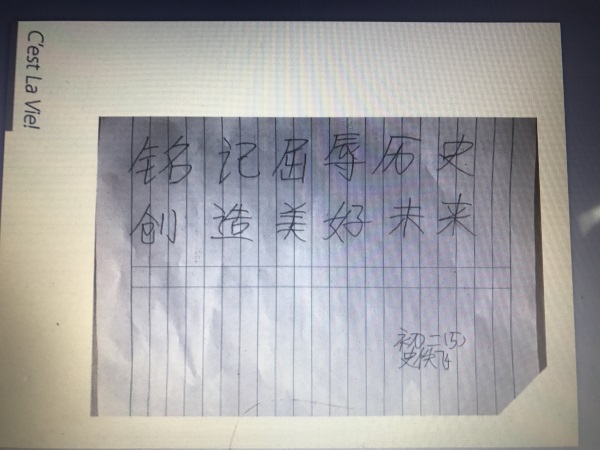 C'est La Vie!
铭记屈辱历史
创造美好未来
初二(5)
史佚飞